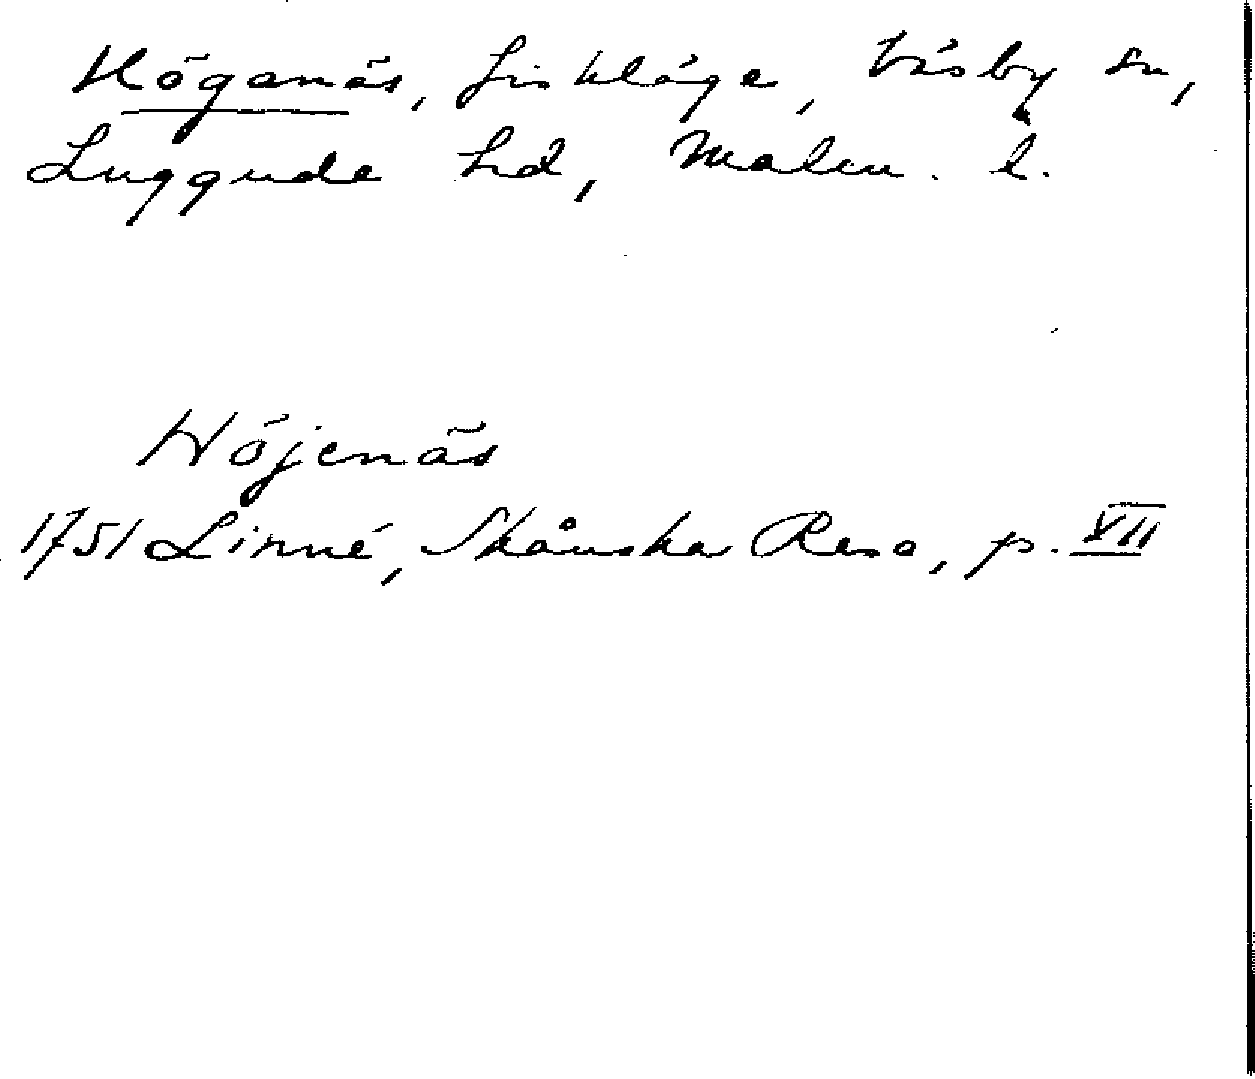 Höganäs, fiskläge, Väsby sn,
Luggude hd, Malm. l.
Höjenäs
1751 Linné, Skånska Resa, p. XII